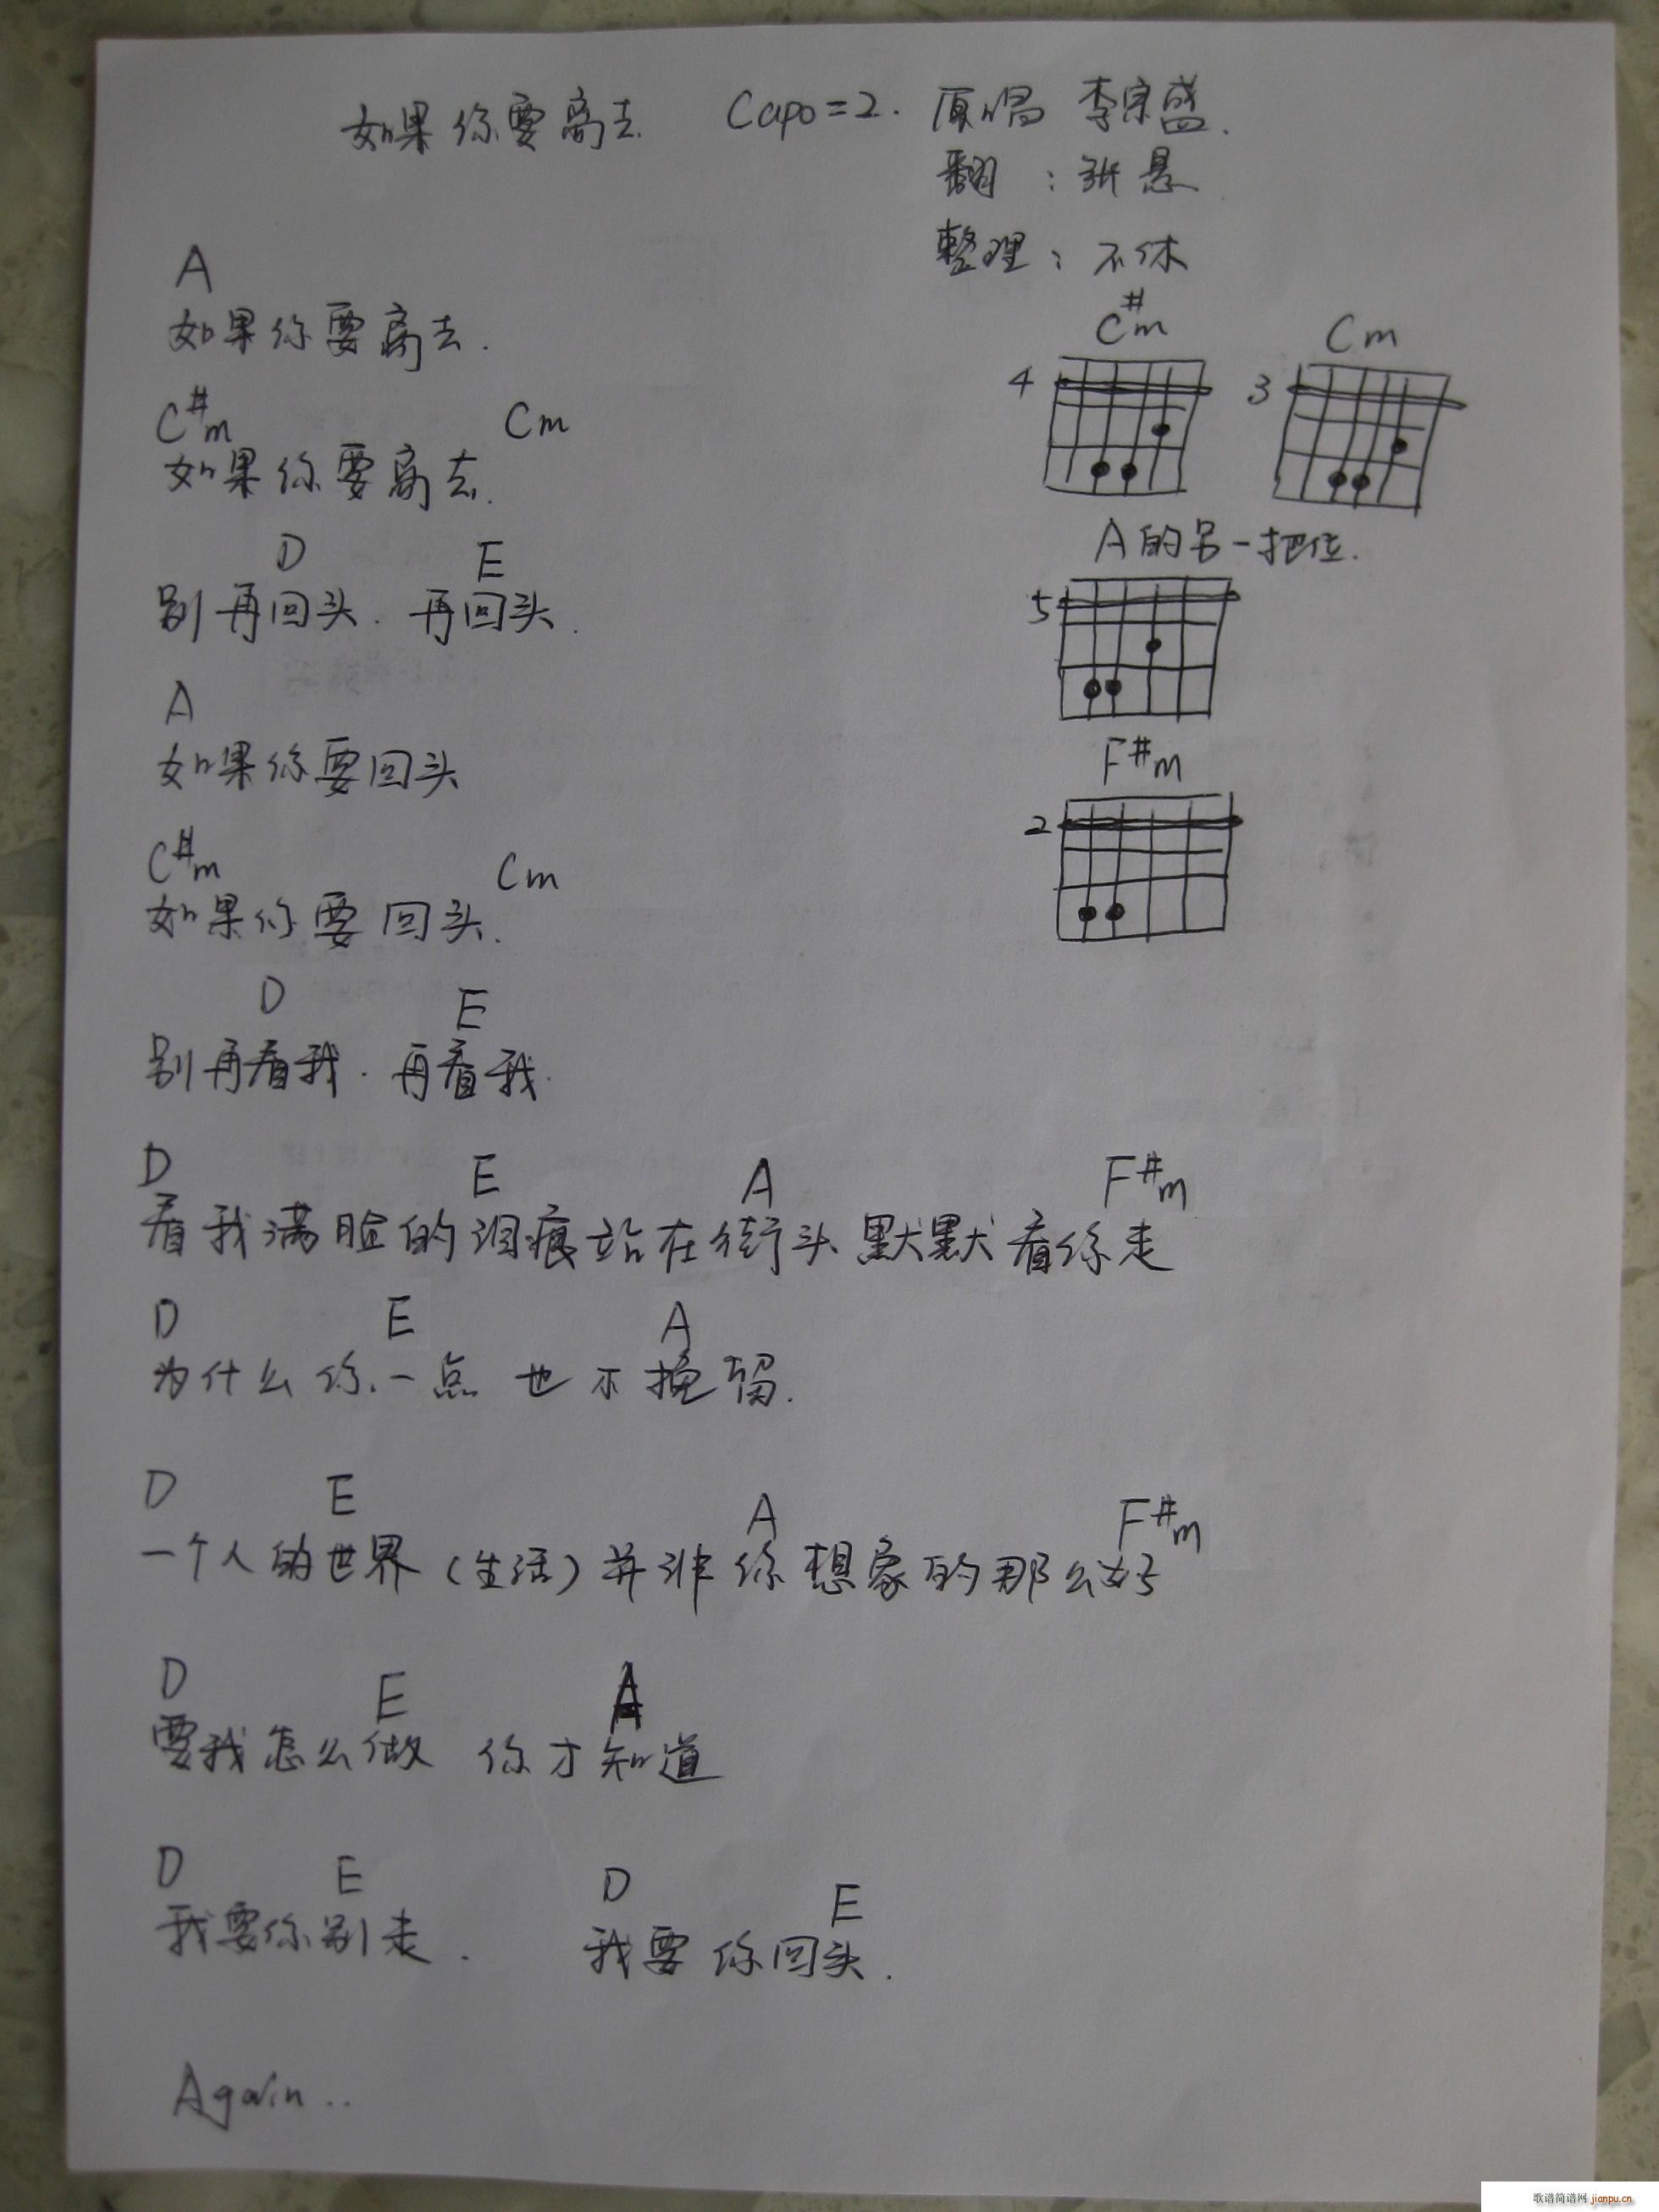 如果你要离去 Capo=2. 原唱 李宗盛.
翻 : 张悬
整理: 不休
A
如果你要离去.
C#m Cm
如果你要离去.
D E
别再回头. 再回头.
A
如果你要回头
C#m Cm
如果你要回头.
D E
别再看我. 再看我.
D E A F#m
看我满脸的泪痕站在街头默默看你走
D E A
为什么你一点也不挽留.
D E A F#m
一个人的世界(生活)并非你想象的那么好
D E A
要我怎么做 你才知道
D E D E
我要你别走. 我要你回头.
Again..
C#m Cm
4 3
A的另一把位.
5
F#m
2
歌谱简谱网 jianpu.cn